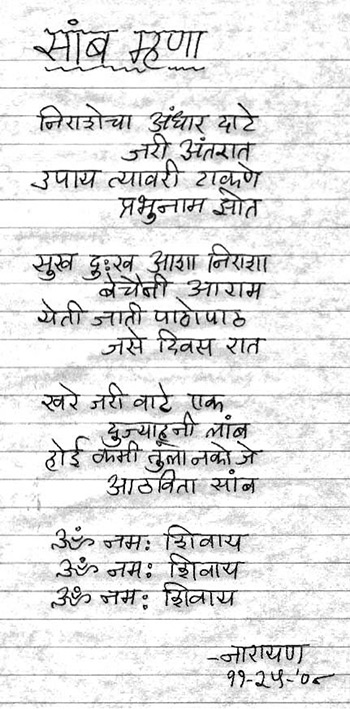 सांब म्हणा
निराशेचा अंधार दाटे
जरी अंतरात
उपाय त्यावरी टाकणे
प्रभुनाम झोत
सुख दुःख आशा निराशा
बेचैनी आराम
येती जाती पाठोपाठ
जसे दिवस रात
खरे जरी वाटे एक
दुज्याहूनी लांब
होई कमी तुला नको जे
आठविता सांब
ॐ नमः शिवाय
ॐ नमः शिवाय
ॐ नमः शिवाय
-नारायण
११-२५-'०८